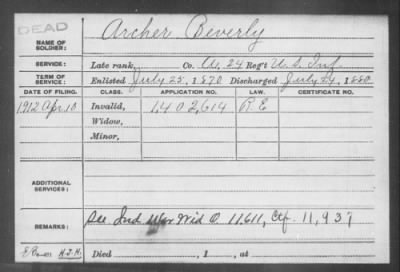 DEAD
Archer Beverly
NAME OF SOLDIER:
SERVICE: Late rank, Co. A, 24 Reg't U.S. Inf.
TERM OF SERVICE: Enlisted July 25, 1870 Discharged July 24, 1880
DATE OF FILING. CLASS. APPLICATION NO. LAW. CERTIFICATE NO.
1912 Apr. 10 Invalid, 1402614 R E
Widow,
Minor,
ADDITIONAL SERVICES:
REMARKS: See Ind War Wid O. 11,611, Ctf. 11,937
Died , 1 , at